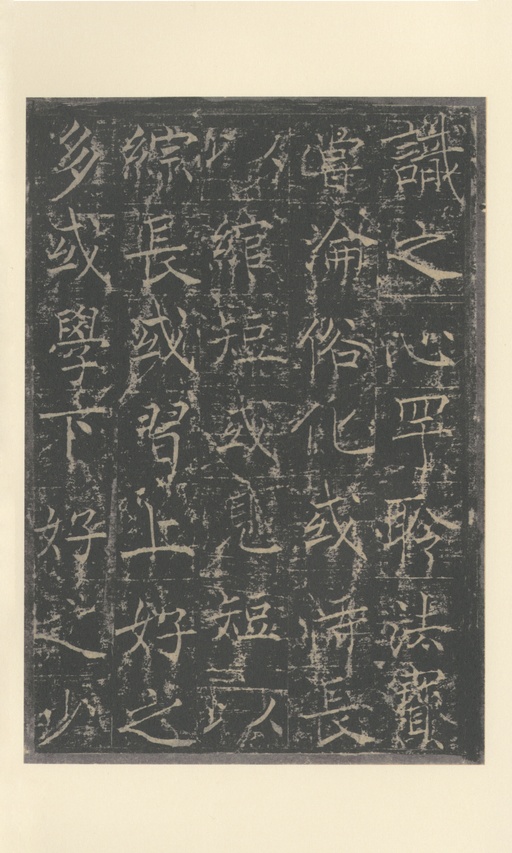 識之心罕聆法寶
淪俗化或恃長
以綰短或怠短以
綜長或習上好之
多或學下好之少